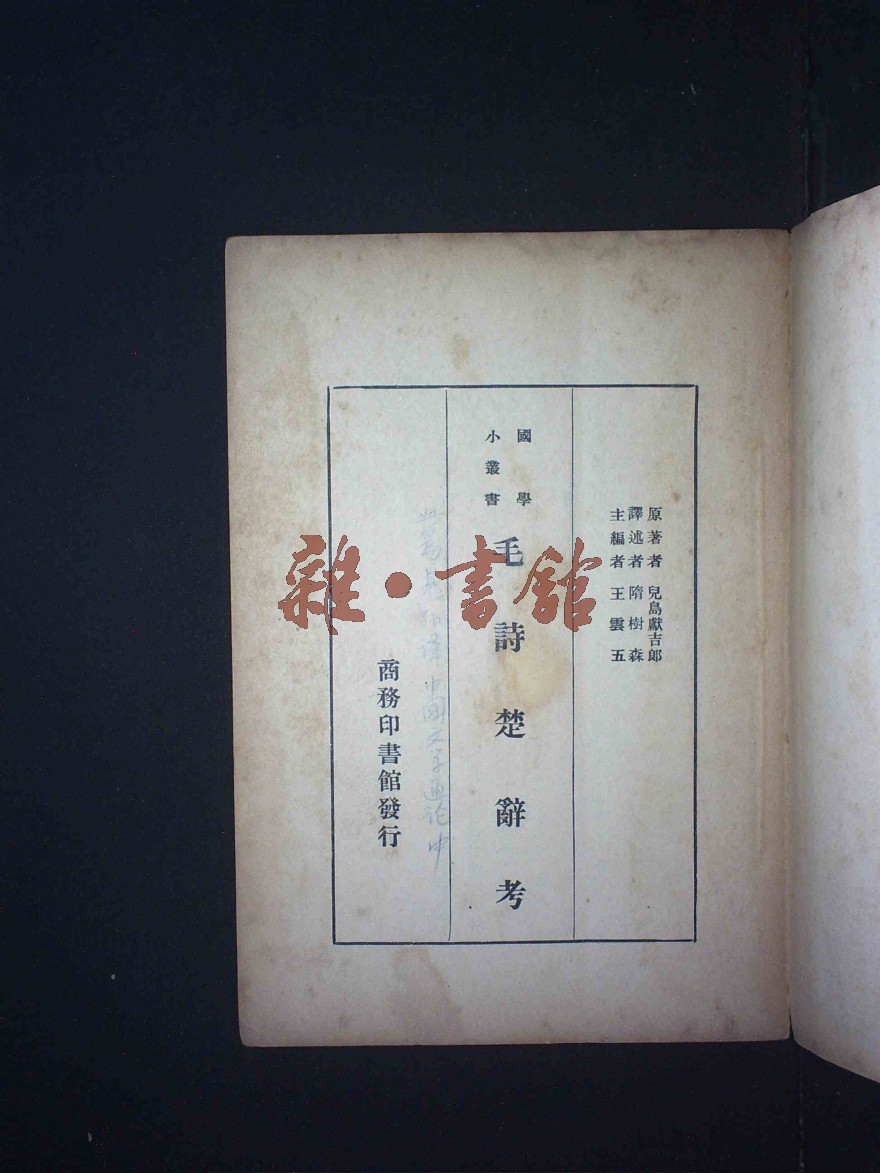 原著者 兒島獻吉郎
譯述者 隋樹森
主編者 王雲五
國學
小叢書
毛詩楚辭考
商務印書館發行
雜·書館